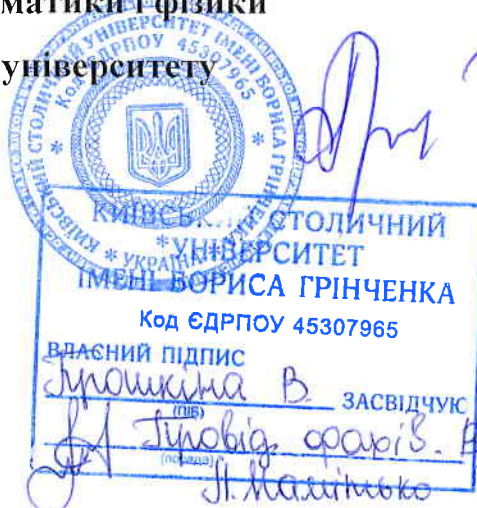 матики і фізики
університету
КИЇВСЬКИЙ СТОЛИЧНИЙ УНІВЕРСИТЕТ ІМЕНІ БОРИСА ГРІНЧЕНКА
Код ЄДРПОУ 45307965
* УКРАЇНА *
СТОЛИЧНИЙ
УНІВЕРСИТЕТ
ІМЕНІ БОРИСА ГРІНЧЕНКА
Код ЄДРПОУ 45307965
ВЛАСНИЙ ПІДПИС
В. ЗАСВІДЧУЮ
(ПІБ)
Провід. фахів. В
(посада)